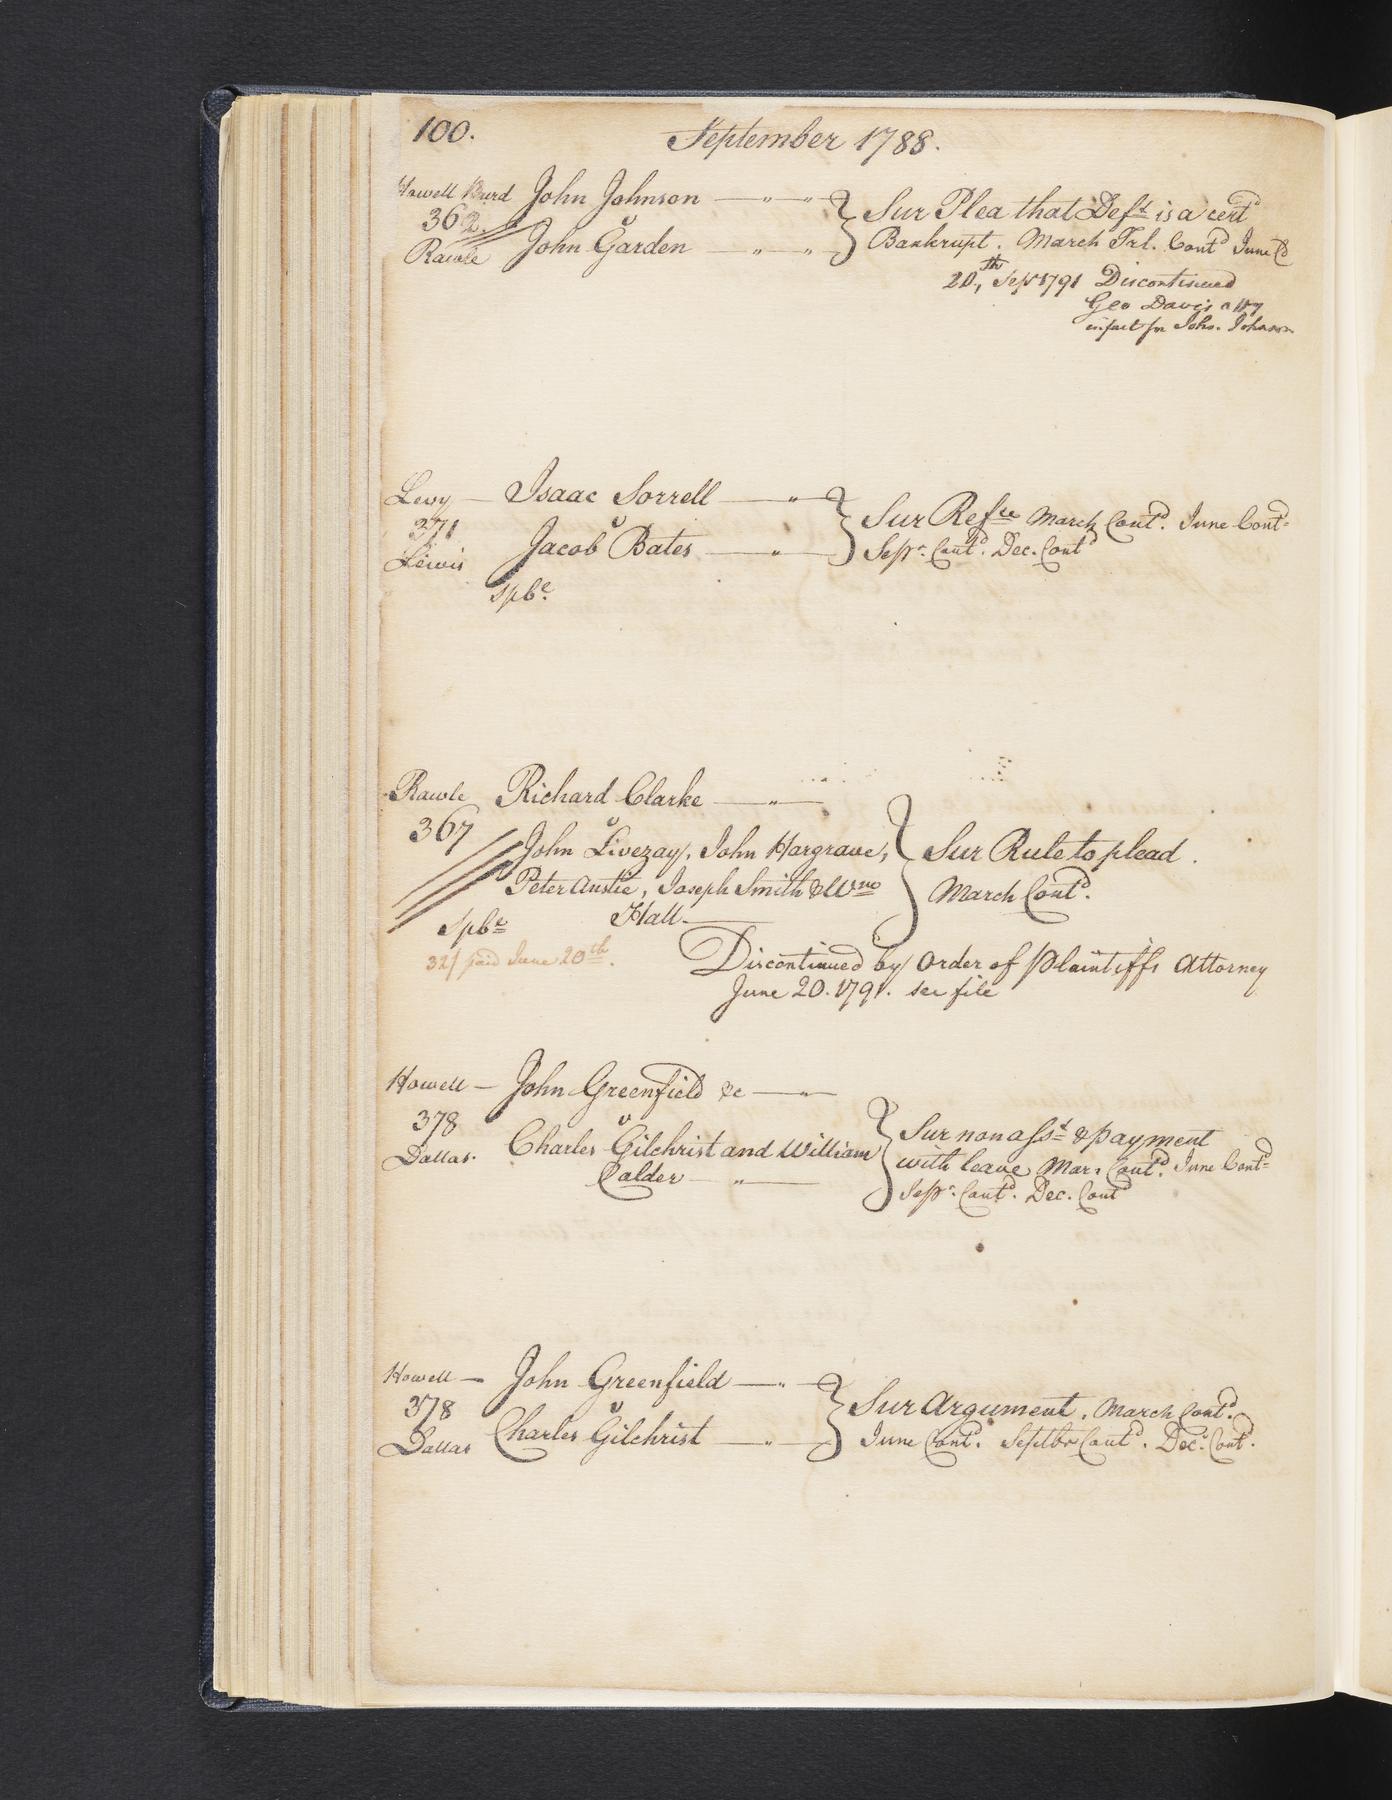 100. September 1788.
Howell Burd John Johnson
362. v
Rawle John Garden
Sur Plea that Deft. is a certd
Bankrupt. March Trl. Contd June Cd
20,th Sepr 1791 Discontinued
Geo Davis atty
in fact for John. Johnson
Levy — Isaac Sorrell
371 v
Lewis Jacob Bates
Spbe.
Sur Refce March Contd. June Contd
Sepr. Contd. Dec. Contd
Rawle Richard Clarke
367 v
John Livezay, John Hargrave,
Peter Austie, Joseph Smith & Wm
Hall
Spbe
32/ paid June 20th.
Sur Rule to plead.
March Contd.
Discontinued by order of Plaintiffs Attorney
June 20. 1791. see file
Howell — John Greenfield &c
378 v
Dallas. Charles Gilchrist and William
Calder
Sur non asst & payment
with leave Mar. Contd. June Contd
Sepr. Contd. Dec. Contd
Howell — John Greenfield
378 v
Dallas Charles Gilchrist
Sur Argument. March Contd.
June Contd. Septbr Contd. Dec. Contd.